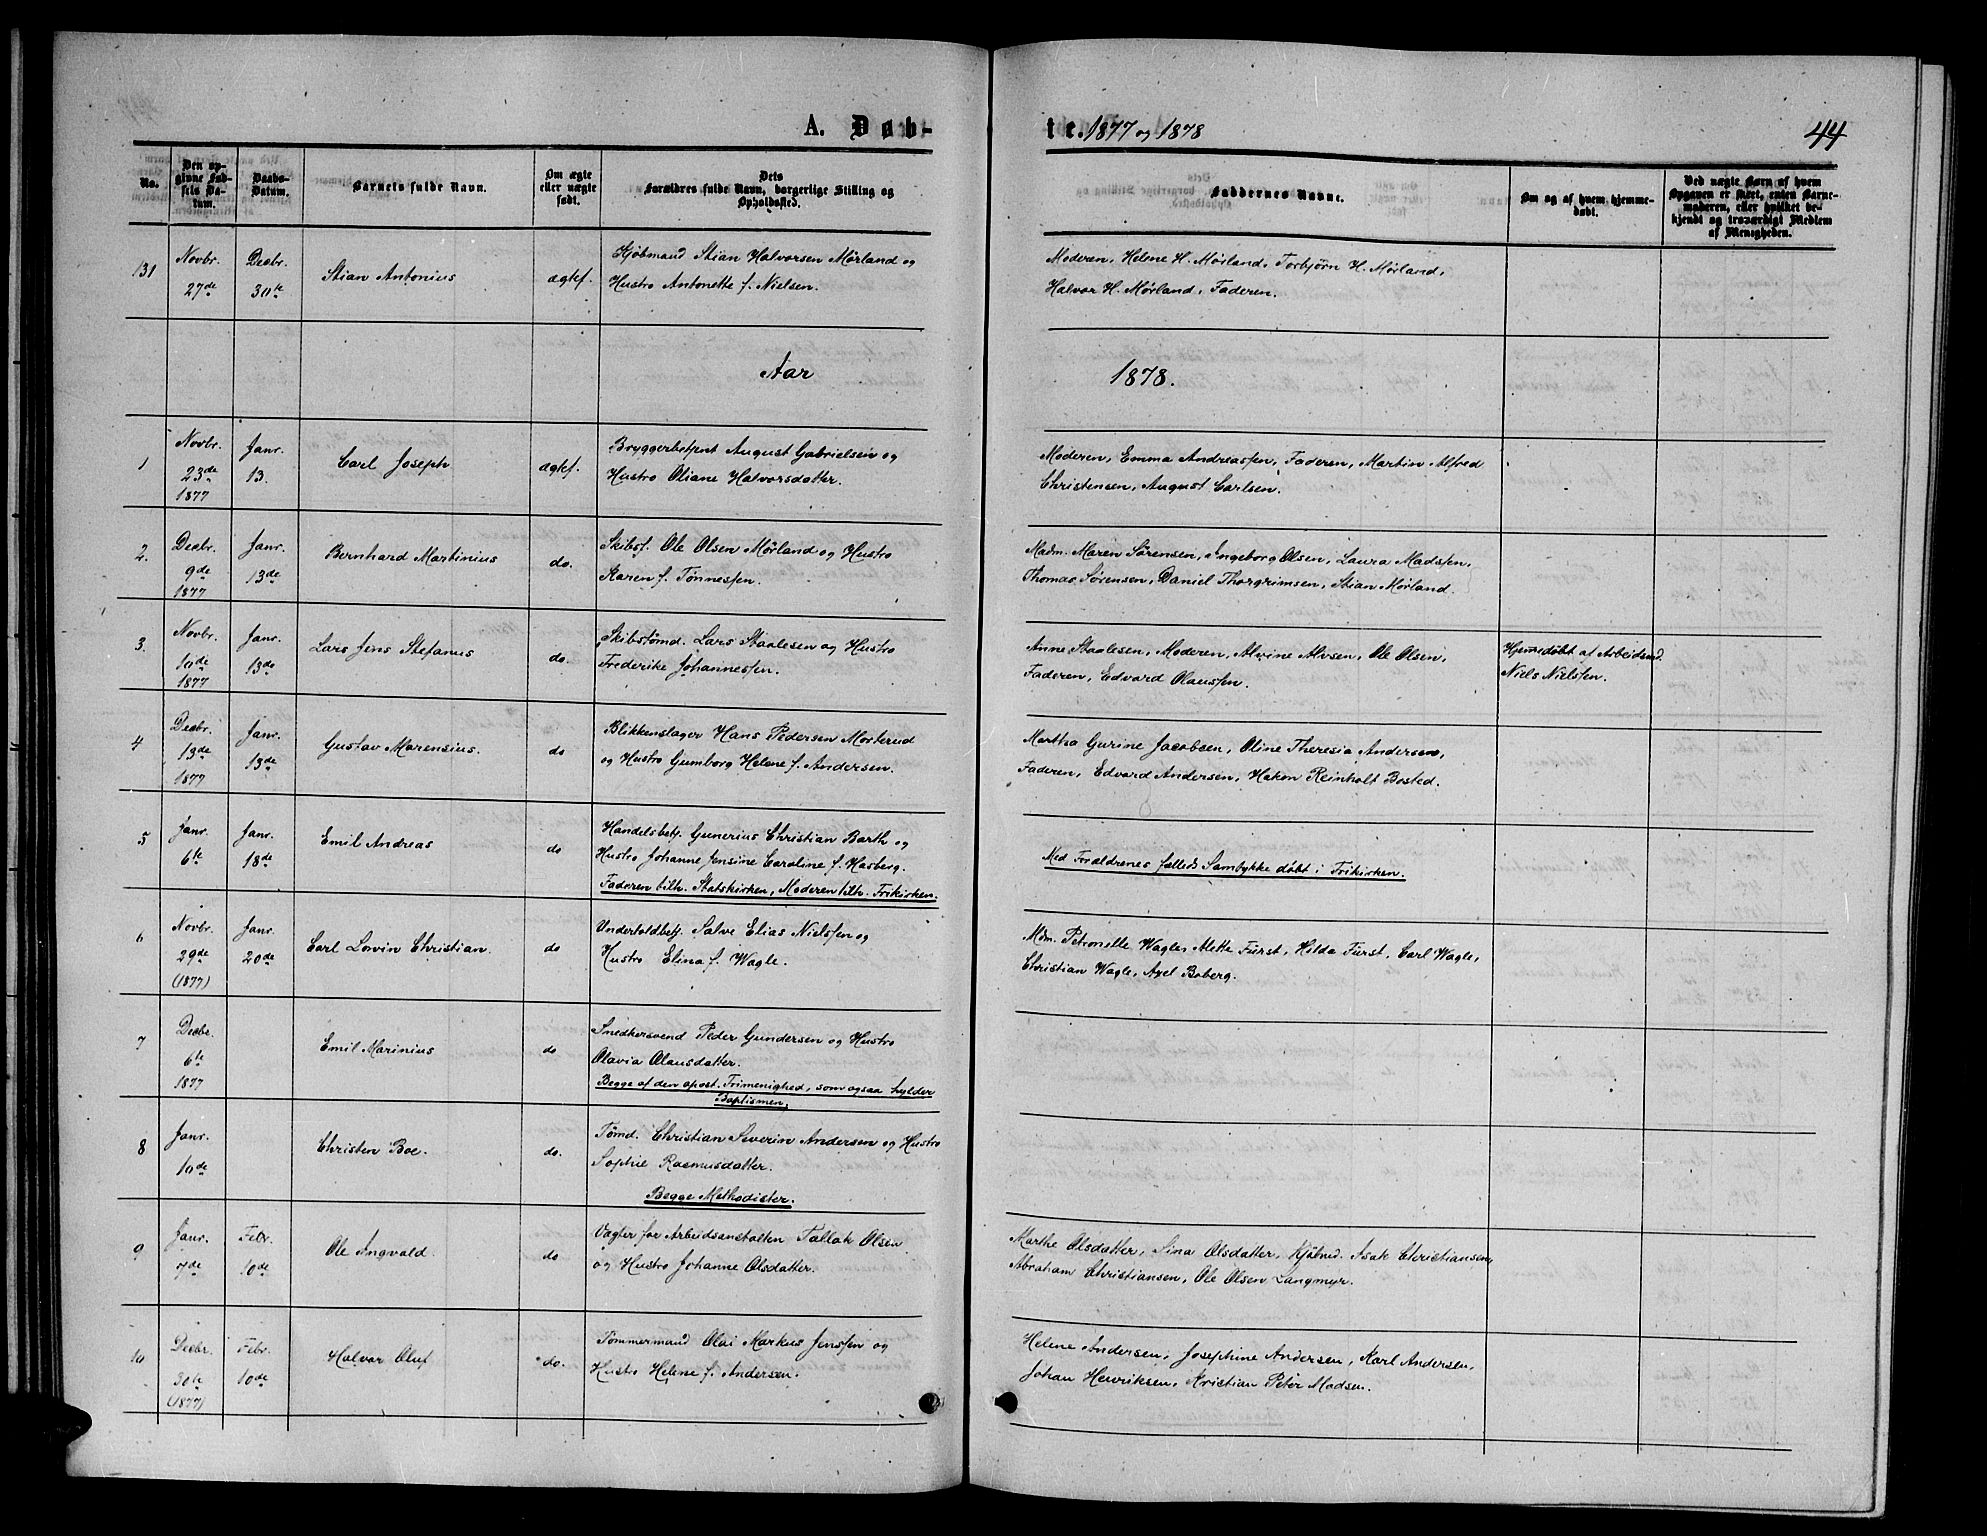 A. Døb-
te. 1877 og 1878
44
No.
Den op-
givne Fød-
sels Da-
tum.
Daabs-
Datum.
Barnets fulde Navn.
Om ægte
eller uægte
født.
Dets
Forældres fulde Navn, borgerlige Stilling og
Opholdssted.
Faddernes Navne.
Om og af hvem hjemme-
døbt.
Ved uægte Børn af hvem
Opgaven er skeet, enten Barne-
moderen, eller hvilket be-
kjendt og troværdigt Medlem
af Menigheden.
131
Novbr.
27de
Decbr.
30te
Stian Antonius
ægtef.
Kjøbmand Stian Halvorsen Mørland og
Hustro Antonette f. Nielsen.
Moderen, Helene H. Mørland, Torbjörn H. Mørland,
Halvor H. Mørland, Faderen.
Aar
1878.
1
Novbr.
23de
1877
Janr.
13.
Carl Joseph
ægtef.
Bryggerbetjent August Gabrielsen og
Hustro Oliane Halvorsdatter.
Moderen, Emma Andreassen, Faderen, Martin Alfred
Christensen, August Carlsen.
2.
Decbr.
9de
1877
Janr.
13de
Bernhard Martinius
do.
Skibsf. Ole Olsen Mørland og Hustro
Karen f. Tønnessen.
Madm. Maren Sørensen, Ingeborg Olsen, Laura Madssen,
Thomas Sørensen, Daniel Thorgrimsen, Stian Mørland.
3.
Novbr.
10de
1877
Janr.
13de
Lars Jens Stefanus
do.
Skibstømd. Lars Staalesen og Hustro
Frederike Johannessen.
Anne Staalesen, Moderen, Alvine Alvsen, Ole Olsen,
Faderen, Edvard Olaussen.
Hjemmedøbt af Arbeidsmd.
Niels Nielssen.
4
Decbr.
13de
1877
Janr.
13de
Gustav Marensius.
do
Blikkenslager Hans Pedersen Morterud
og Hustro Gumborg Helene f. Andersen.
Martha Gurine Jacobsen, Oline Theresia Andersen,
Faderen, Edvard Andersen, Hakon Reinholt Bosted.
5
Janr.
6te
Janr.
18de
Emil Andreas
do
Handelsbetj. Gunerius Christian Barth og
Hustro Johanne Jensine Caroline f. Hasberg.
Faderen tilh. Statskirken, Moderen tilh. Frikirken.
Med Forældrenes fælleds Samtykke døbt i Frikirken.
6
Novbr.
29de
(1877)
Janr.
20de
Carl Lovin Christian.
do
Undertoldbetj. Salve Elias Nielssen og
Hustro Elina f. Wagle.
Mdm. Petronille Wagle, Mette Fürst, Hilda Fürst, Carl Wagle,
Christian Wagle, Axel Boberg.
7
Decbr.
6te
1877
Emil Marinius
do
Snedkersvend Peder Gundersen og Hustro
Olavia Olausdatter.
Begge af den apost. Frimenighed, som ogsaa hylder
Baptismen.
8
Janr.
10de
Christen Boe.
do.
Tømd. Christian Severin Andersen og Hustro
Sophie Rasmusdatter.
Begge Methodister.
9
Janr.
7de
Febr.
10de
Ole Ingvald.
do
Vagter for Arbeidsanstalten Tallak Olsen
og Hustro Johanne Olsdatter.
Marthe Olsdatter, Sina Olsdatter, Kjøbmd. Isak Christiansen,
Abraham Christiansen, Ole Olsen Langmyr.
10
Decbr.
30te
(1877)
Febr.
10de
Halvor Oluf
do.
Tømmermand Olai Markus Jenssen og
Hustro Helene f. Andersen.
Helene Andersen, Josephine Andersen, Karl Andersen,
Johan Henriksen, Kristian Peter Madsen.